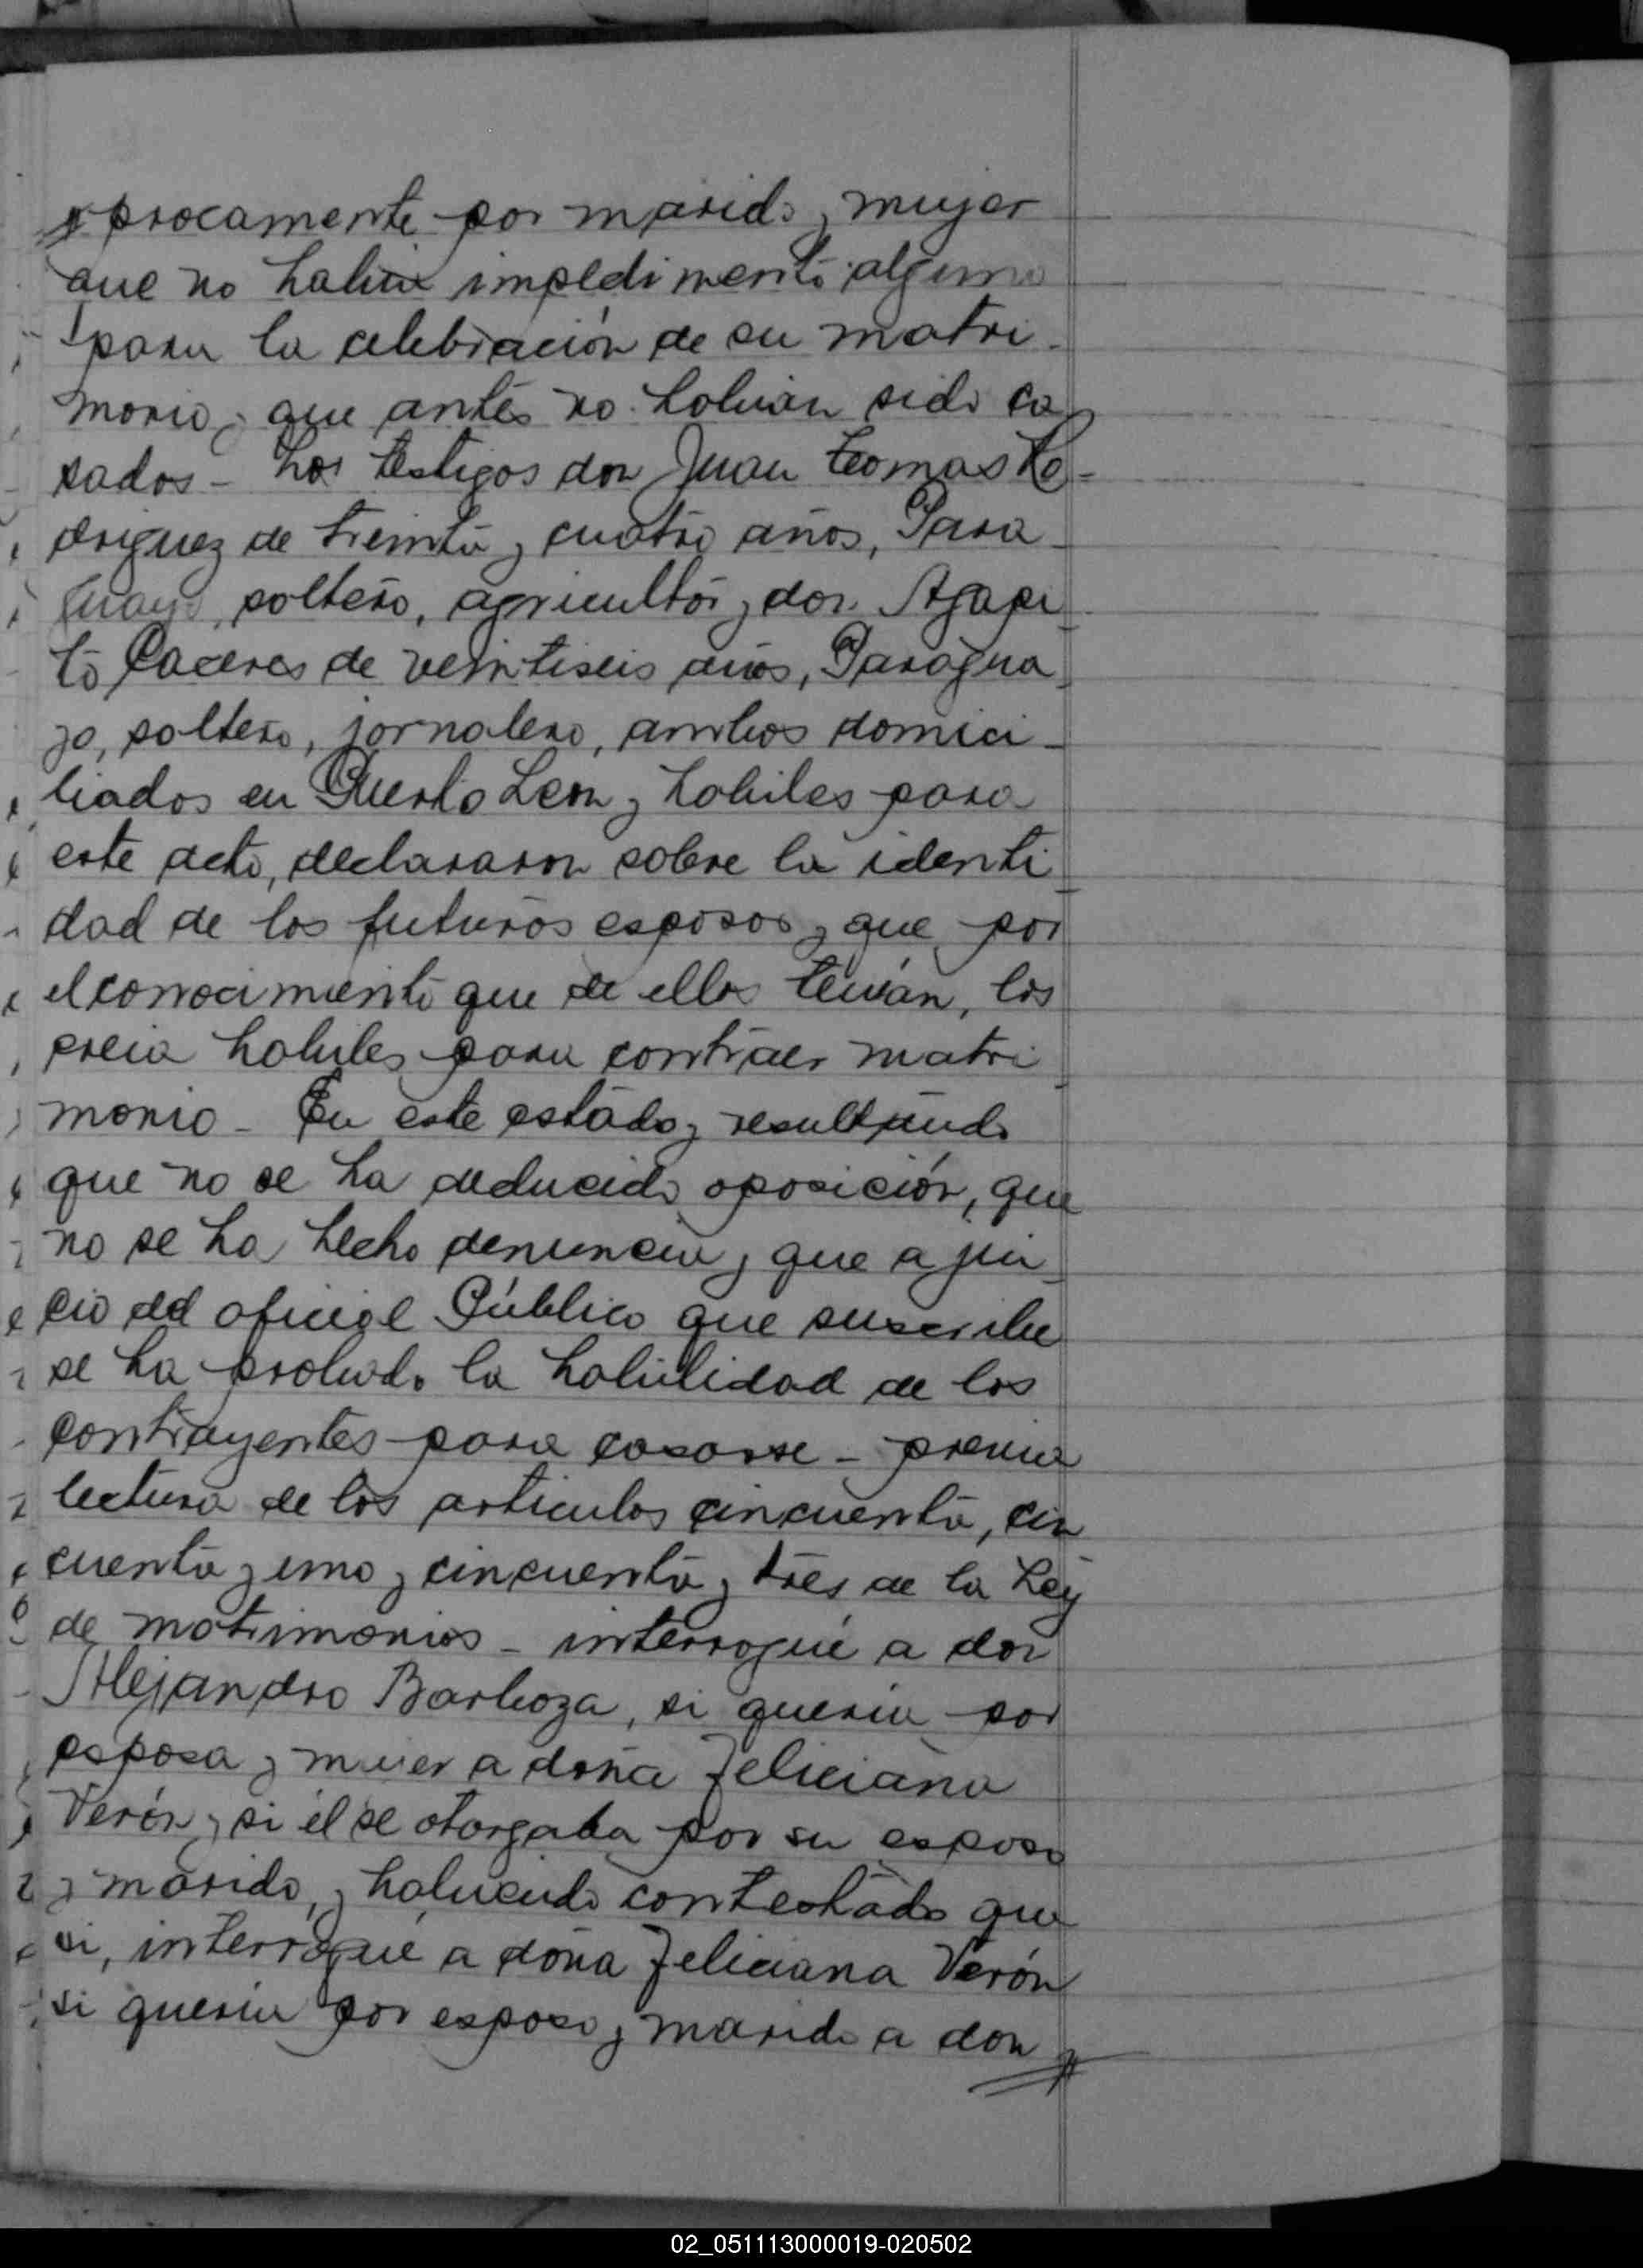 procamente por marido y mujer
que no había impedimento alguno
para la celebración de su matri-
monio y que antes no habian sido ca
sados - Los testigos don Juan Teomas Ro-
driguez de treinta y cuatro años, Para-
guayo, soltero, agricultor y don Agapi-
to Caceres de veintiseis años, Paragua-
yo, soltero, jornalero, ambos domici-
liados en Puerto Leon y habiles para
este acto, declararon sobre la identi-
dad de los futuros esposos y que por
el conocimiento que de ellos tenían, los
creia habiles para contraer matri-
monio - En este estado y resultando
que no se ha deducido oposición, que
no se ha hecho denuncia y que a jui-
cio del oficial Público que suscribe
se ha probado la habilidad de los
contrayentes para casarse - previa
lectura de los articulos cincuenta, cin
cuenta y uno y cincuenta y tres de la Ley
de matrimonios - interrogué a don
Alejandro Barboza, si queria por
esposa y mujer a doña Feliciana
Verón y si él se otorgaba por su esposo
y marido, y habiendo contestado que
si, interrogué a doña Feliciana Verón
si queria por esposo y marido a don
02_051113000019-020502